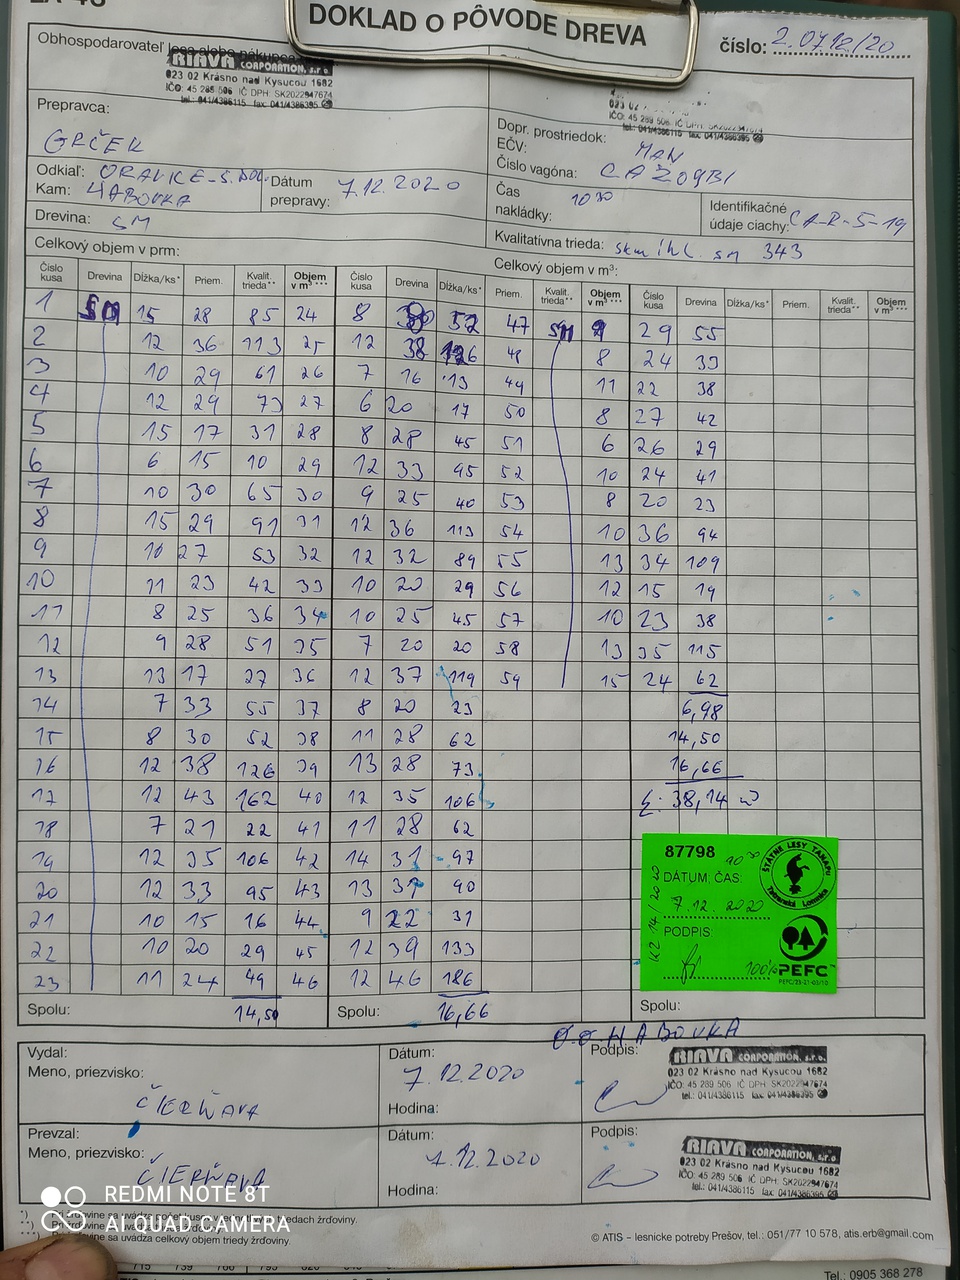 DOKLAD O PÔVODE DREVA
číslo: 2.0712/20
Obhospodarovateľ lesa alebo nákupca
RIAVA CORPORATION, s.r.o.
023 02 Krásno nad Kysucou 1682
IČO: 45 289 506 IČ DPH: SK2022947674
tel.: 041/4386115 fax: 041/4386395
023 02
IČO: 45 289 506, IČ DPH: SK2022947674
tel.: 041/4386115 fax: 041/4386395
Prepravca:
GRČEK
Dopr. prostriedok: MAN
EČV:
Číslo vagóna: CA 209BI
Odkiaľ: ORAVICE-S.DOL.
Kam: HABOVKA
Dátum prepravy: 7.12.2020
Čas nakládky: 10 30
Identifikačné údaje ciachy: CA-R-5-19
Drevina: SM
Kvalitatívna trieda: skm ihl. sm 343
Celkový objem v prm:
Celkový objem v m³:
Číslo kusa Drevina Dĺžka/ks* Priem. Kvalit. trieda** Objem v m³ *** Číslo kusa Drevina Dĺžka/ks* Priem. Kvalit. trieda** Objem v m³ *** Číslo kusa Drevina Dĺžka/ks* Priem. Kvalit. trieda** Objem v m³ ***
1 SM 15 28 85 24 8 30 52 47 SM 9 29 55
2 12 36 113 25 12 38 126 48 8 24 33
3 10 29 61 26 7 16 13 49 11 22 38
4 12 29 73 27 6 20 17 50 8 27 42
5 15 17 31 28 8 28 45 51 6 26 29
6 6 15 10 29 12 33 95 52 10 24 41
7 10 30 65 30 9 25 40 53 8 20 23
8 15 29 91 31 12 36 113 54 10 36 94
9 10 27 53 32 12 32 89 55 13 34 109
10 11 23 42 33 10 20 29 56 12 15 19
11 8 25 36 34 10 25 45 57 10 23 38
12 9 28 51 35 7 20 20 58 13 35 115
13 13 17 27 36 12 37 119 59 15 24 62
14 7 33 55 37 8 20 23 6,98
15 8 30 52 38 11 28 62 14,50
16 12 38 126 39 13 28 73 16,66
17 12 43 162 40 12 35 106 Σ: 38,14
18 7 21 22 41 11 28 62
19 12 35 106 42 14 31 97
20 12 33 95 43 13 31 90
21 10 15 16 44 9 22 31
22 10 20 29 45 12 39 133
23 11 24 49 46 12 46 186
Spolu: 14,50 Spolu: 16,66 Spolu:
87798
10 30
DÁTUM; ČAS:
7.12.2020
PODPIS:
100%
K2 14/2020
ŠTÁTNE LESY TANAPu
Tatranská Lomnica
PEFC™
HABOVKA
Vydal:
Meno, priezvisko:
ČIERŇAVA
Dátum:
7.12.2020
Hodina:
Podpis:
RIAVA CORPORATION, s.r.o.
023 02 Krásno nad Kysucou 1682
IČO: 45 289 506 IČ DPH: SK2022947674
tel.: 041/4386115 fax: 041/4386395
Prevzal:
Meno, priezvisko:
ČIERŇAVA
Dátum:
7.12.2020
Hodina:
Podpis:
RIAVA CORPORATION, s.r.o.
023 02 Krásno nad Kysucou 1682
IČO: 45 289 506, IČ DPH: SK2022947674
tel.: 041/4386115 fax: 041/4386395
REDMI NOTE 8T
AI QUAD CAMERA
sa uvádza celkový objem triedy žrďoviny.
© ATIS – lesnícke potreby Prešov, tel.: 051/77 10 578, atis.erb@gmail.com
Tel.: 0905 368 278